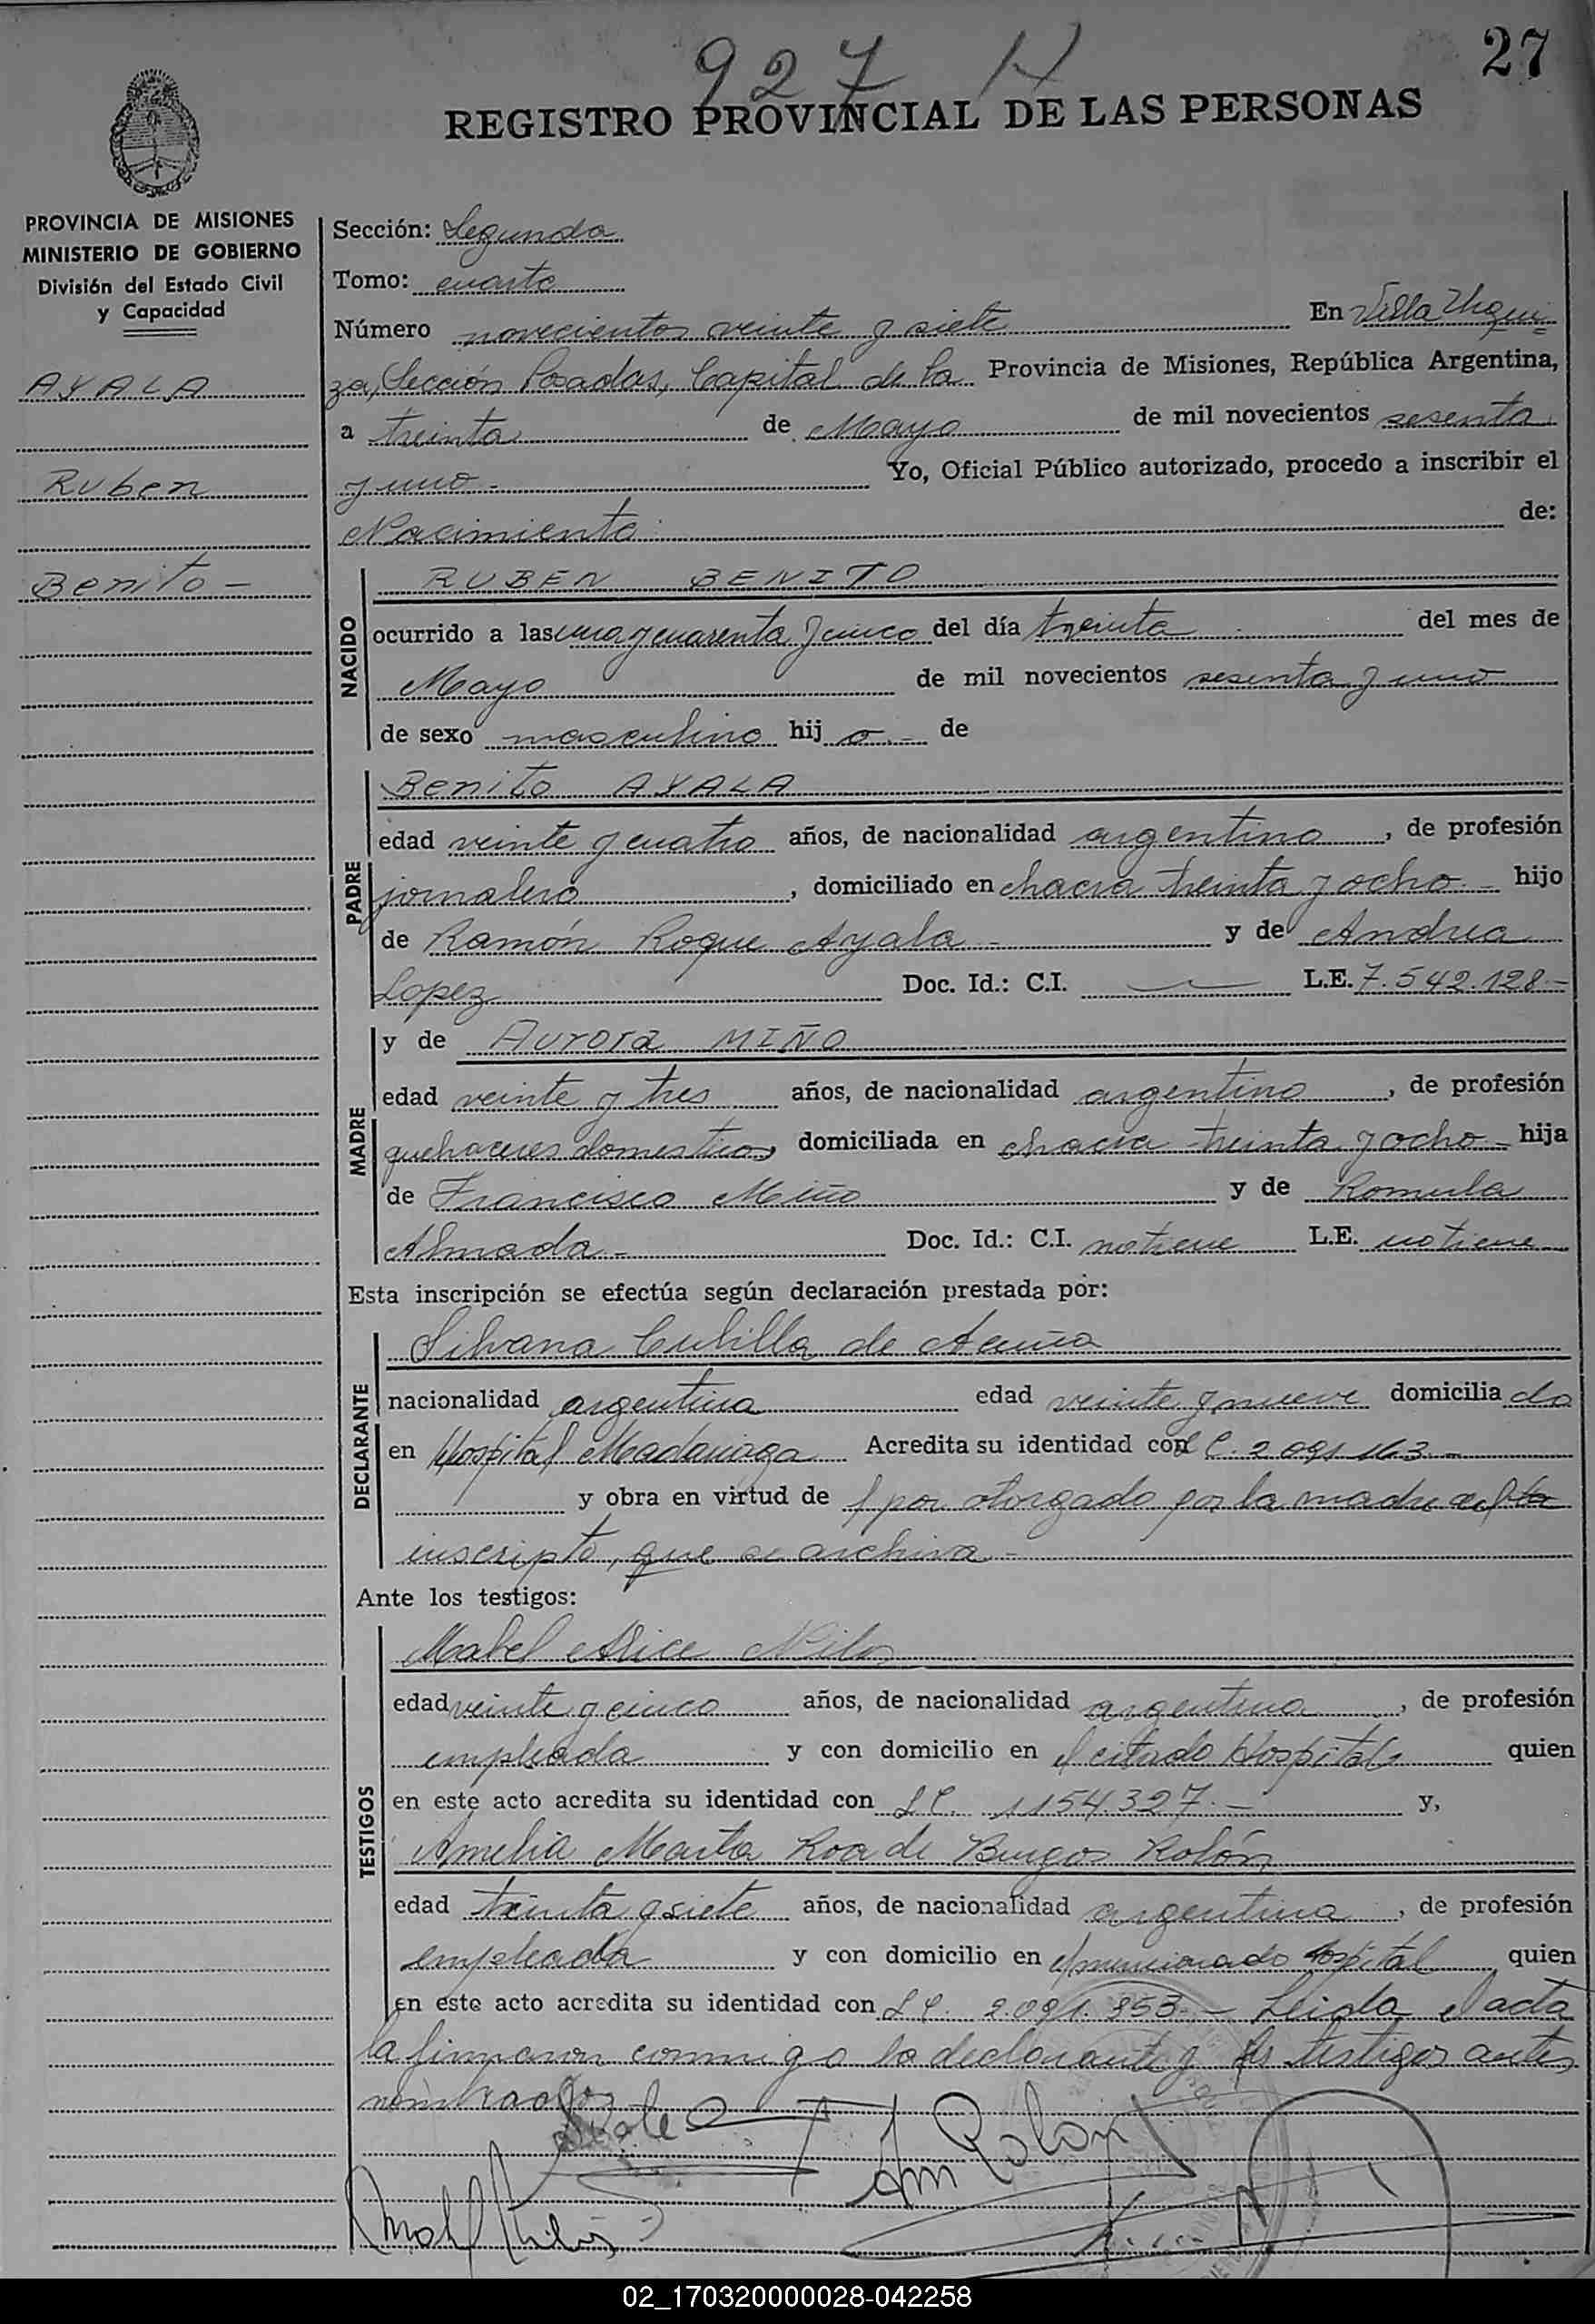 927 H
27
REGISTRO PROVINCIAL DE LAS PERSONAS
PROVINCIA DE MISIONES
MINISTERIO DE GOBIERNO
División del Estado Civil
y Capacidad
AYALA
Ruben
Benito -
Sección: Segunda
Tomo: cuarto
Número novecientos veinte y siete En Villa Urqui=
za, Sección Posadas, Capital de la Provincia de Misiones, República Argentina,
a treinta de Mayo de mil novecientos sesenta
y uno.- Yo, Oficial Público autorizado, procedo a inscribir el
Nacimiento de:
NACIDO
RUBEN BENITO
ocurrido a las una y cuarenta y cinco del día treinta del mes de
Mayo de mil novecientos sesenta y uno
de sexo masculino hij o.- de
PADRE
Benito AYALA
edad veinte y cuatro años, de nacionalidad argentino, de profesión
jornalero, domiciliado en chacra treinta y ocho - hijo
de Ramón Roque Ayala - y de Andrea
Lopez Doc. Id.: C.I. — L.E. 7.542.128.-
MADRE
y de Aurora MIÑO
edad veinte y tres años, de nacionalidad argentina, de profesión
quehaceres domesticos, domiciliada en chacra treinta y ocho - hija
de Francisco Miño y de Romula
Almada - Doc. Id.: C.I. no tiene L.E. no tiene
Esta inscripción se efectúa según declaración prestada por:
DECLARANTE
Silvana Cubilla de Acuña
nacionalidad argentina edad veinte y nueve domicilia da
en Hospital Madariaga Acredita su identidad con L C. 2.091.163 -
y obra en virtud de otorgado por la madre del
inscripto, que se archiva -
Ante los testigos:
TESTIGOS
Mabel Alice
edad veinte y cinco años, de nacionalidad argentina, de profesión
empleada y con domicilio en el citado Hospital, quien
en este acto acredita su identidad con L C. 1154.327.- y,
Amelia Marta Roa de Burgos Rolón
edad treinta y siete años, de nacionalidad argentina, de profesión
empleada y con domicilio en el mencionado Hospital quien
en este acto acredita su identidad con L C. 2.091.353.- Leida el acta
la firmaron conmigo la declarante y los testigos antes
nombrados
Am Rolon
02_170320000028-042258